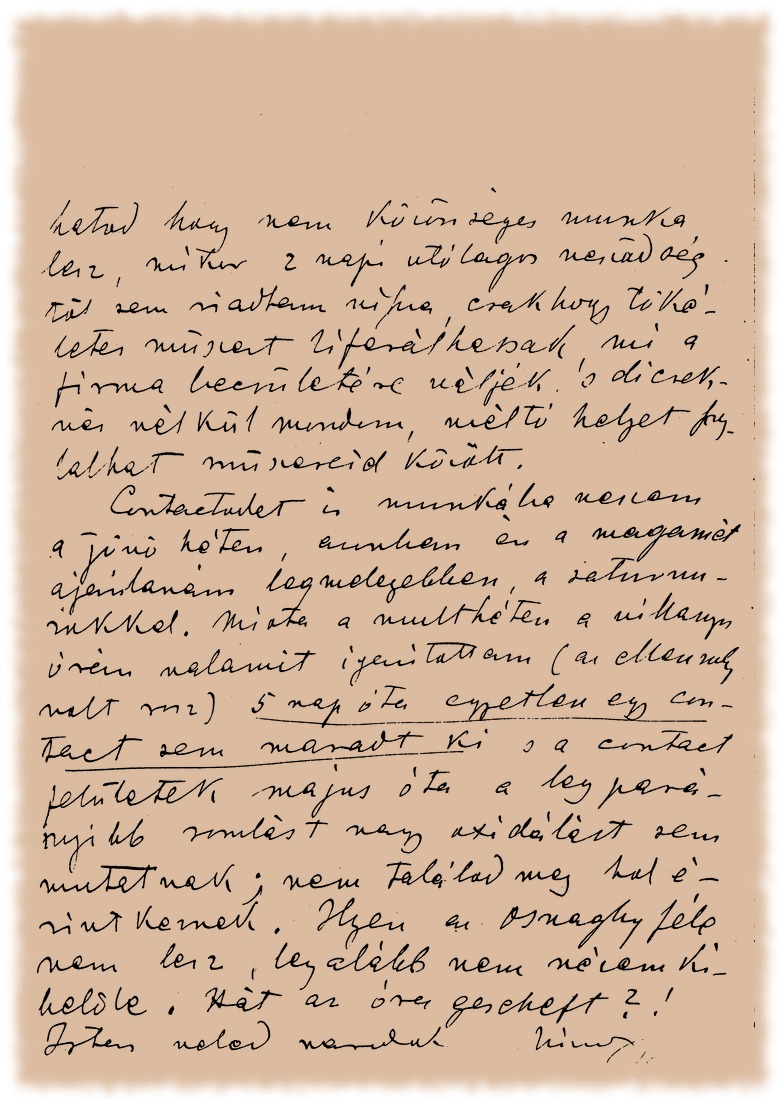 hatod hogy nem közönséges munka
lesz, mikor 2 napi utólagos vesződség
től sem riadtam vissza, csakhogy töké-
letes műszert liferálhassak, mi a
firma becsületére váljék 's dicsek-
vés nélkül mondom, méltó helyet fog-
lalhat műszereid között.
Contactodat is munkába veszem
a jövő héten, azonban én a magamét
ajánlanám legmelegebben, a saturnu-
sukkal. Miota a multhéten a villanyos
órám valamit igazítottam (az ellensuly
volt rosz) 5 nap óta egyetlen egy con-
tact sem maradt ki s a contact
felületek május óta a leg pará-
nyibb romlást vagy oxidálást sem
mutatnak; nem találod meg hol é-
rintkeznek. Ilyen az Osnaghy féle
nem lesz, legalább nem nézem ki-
belőle. Hát az óra gescheft?!
Isten veled maradok